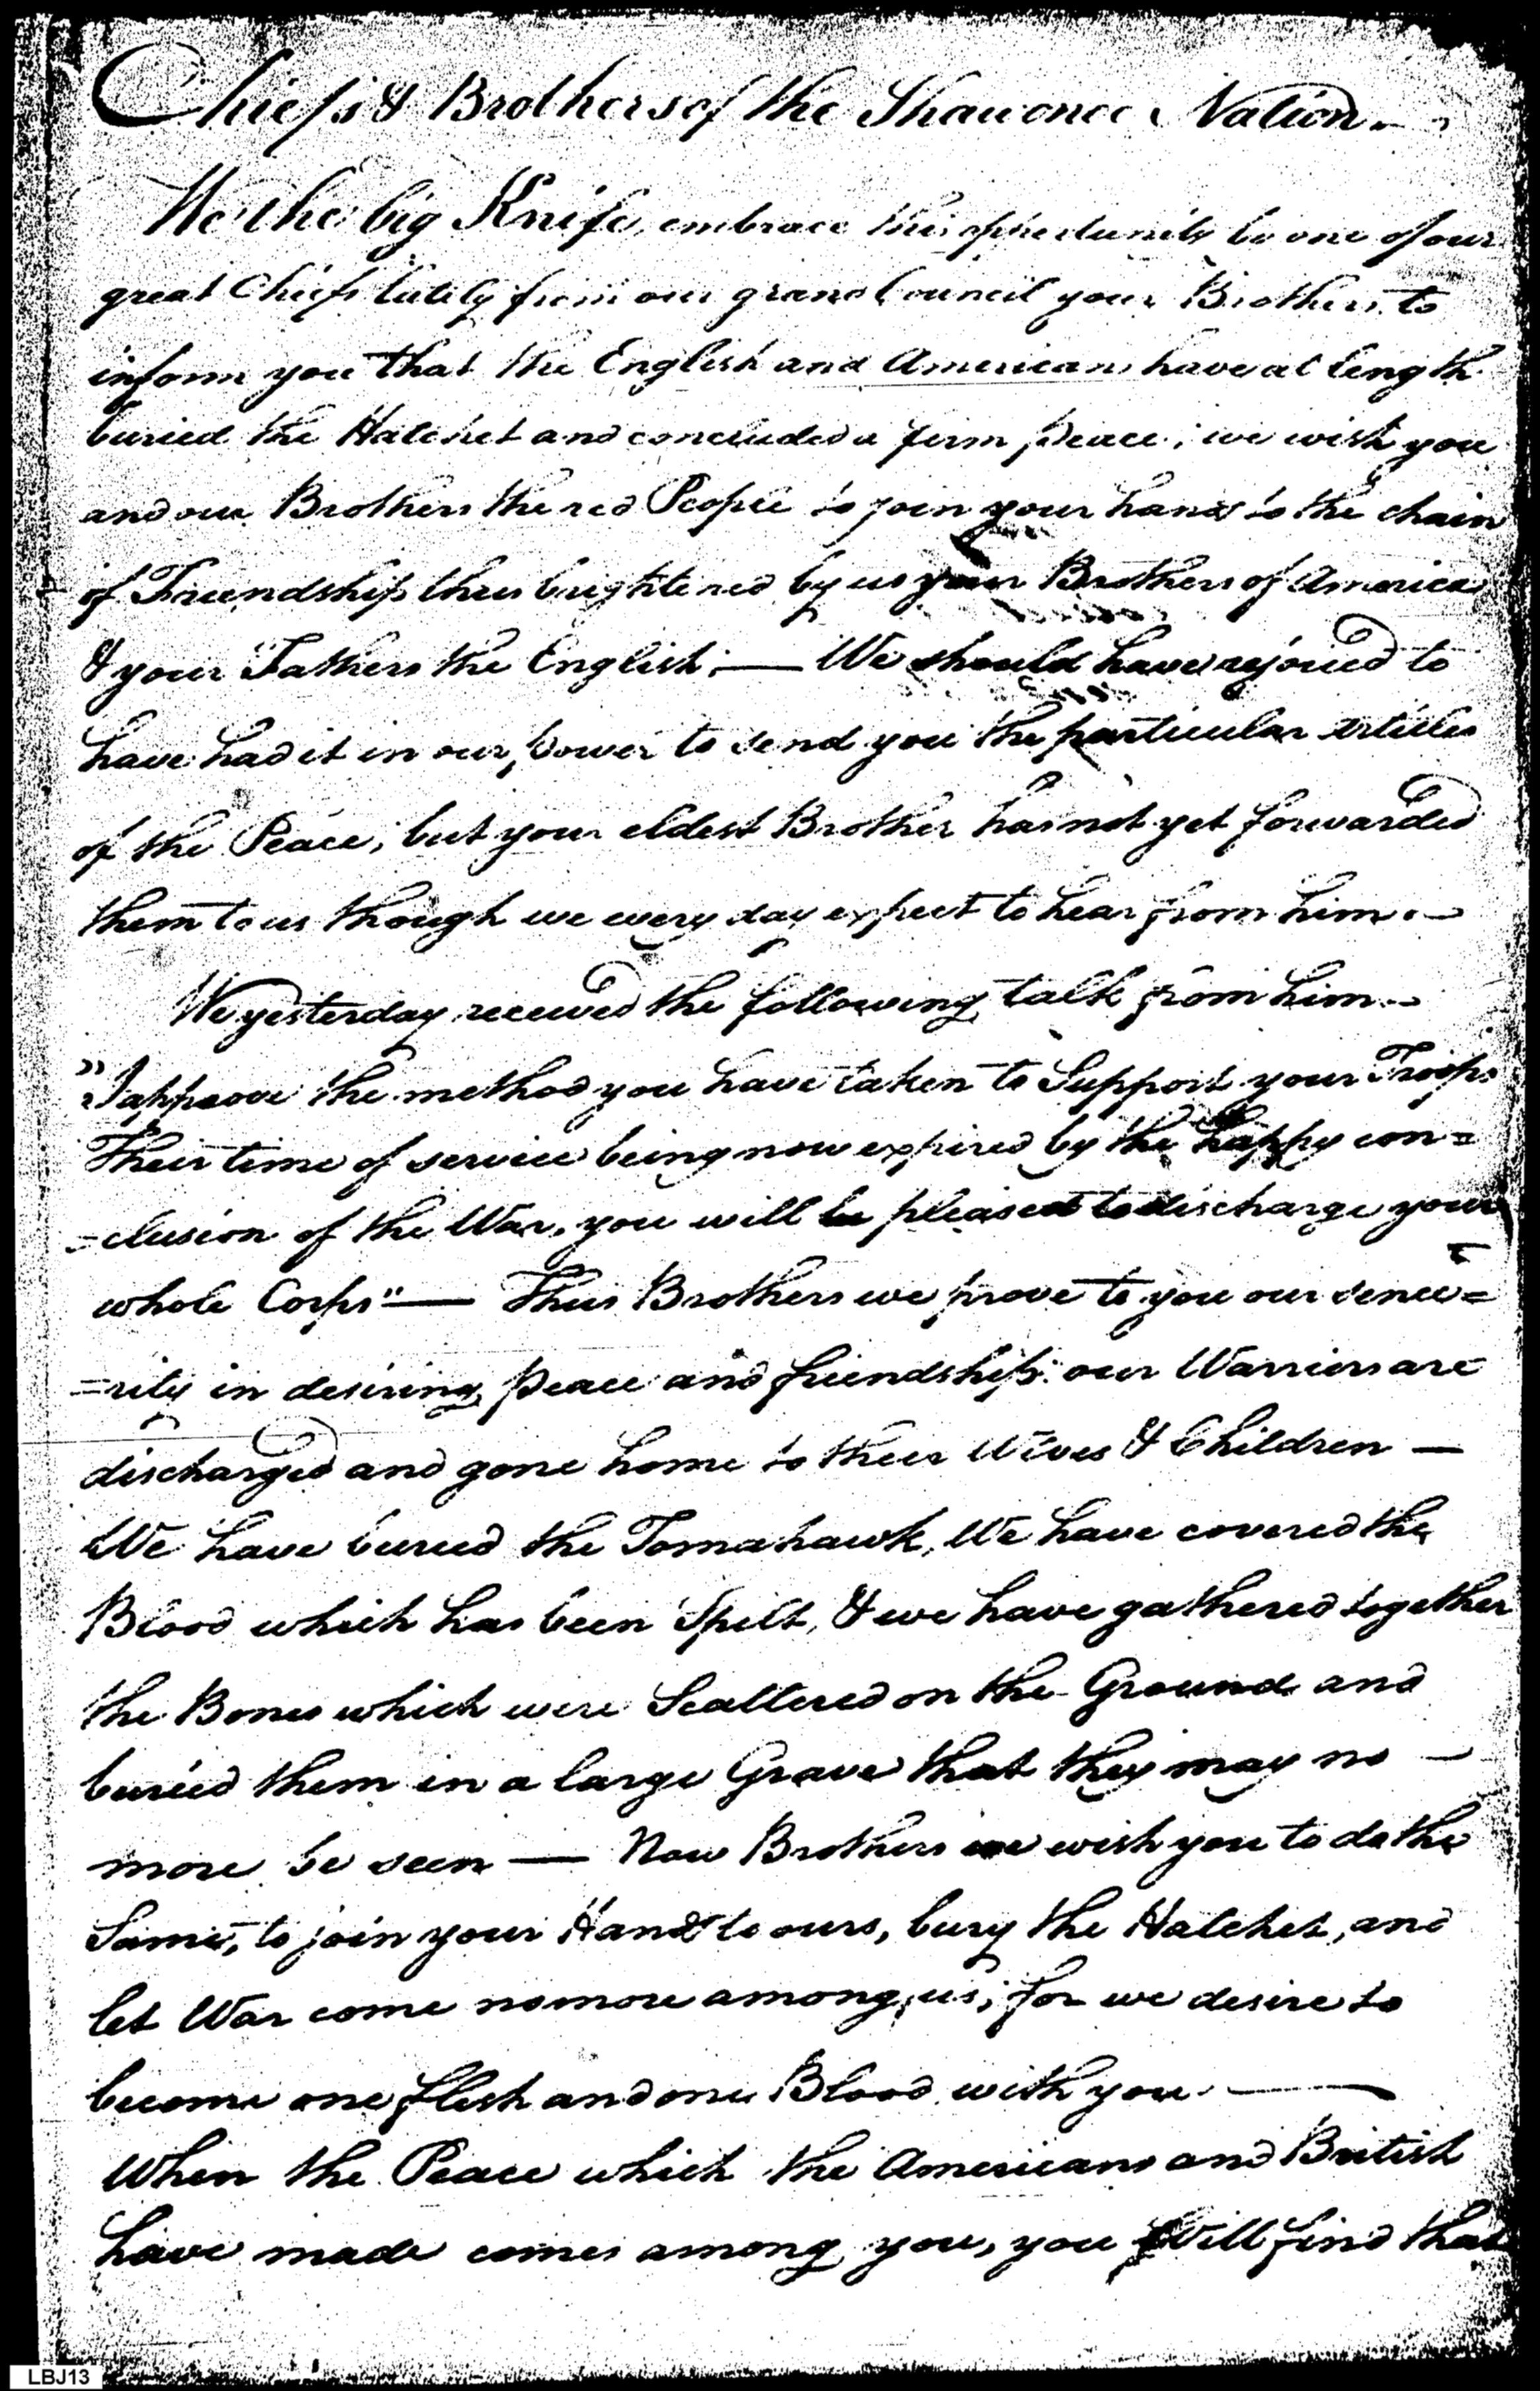 Chiefs & Brothers of the Shawonee Nation.
We the big Knife, embrace this opportunity by one of our
great Chiefs lately from our grand Council your Brothers, to
inform you that the English and Americans have at length
buried the Hatchet and concluded a firm peace; we wish you
and our Brothers the red People to join your hands to the chain
of Friendship thus brightened by us your Brothers of America
& your Fathers the English; — We should have rejoiced to
have had it in our power to send you the particular Articles
of the Peace; but your eldest Brother has not yet forwarded
them to us though we every day expect to hear from him. —
We yesterday received the following talk from him —
"I approve the method you have taken to Support your Troops
Their time of service being now expired by the happy con=
=clusion of the War, you will be pleased to discharge your
whole Corps" — Thus Brothers we prove to you our sence=
=rity in desiring peace and friendship: our Warriors are
discharged and gone home to their Wives & Children —
We have buried the Tomahawk, We have covered the
Blood which has been Spilt, & we have gathered together
the Bones which were Scattered on the Ground and
buried them in a large Grave that they may no —
more be seen — Now Brothers we wish you to do the
Same, to join your Hand to ours, bury the Hatchet, and
let War come no more among us; for we desire to
become one flesh and one Blood with you. —
When the Peace which the Americans and British
have made comes among you, you Will find that
LBJ13